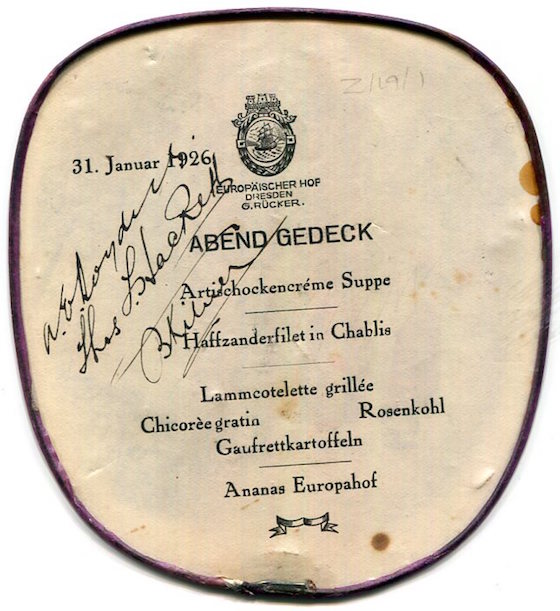 Z/19/1
31. Januar 1926
EUROPÄISCHER HOF
DRESDEN
G. RÜCKER.
ABEND GEDECK
Artischockencréme Suppe
Haffzanderfilet in Chablis
Lammcotelette grillée
Chicorèe gratin Rosenkohl
Gaufrettkartoffeln
Ananas Europahof